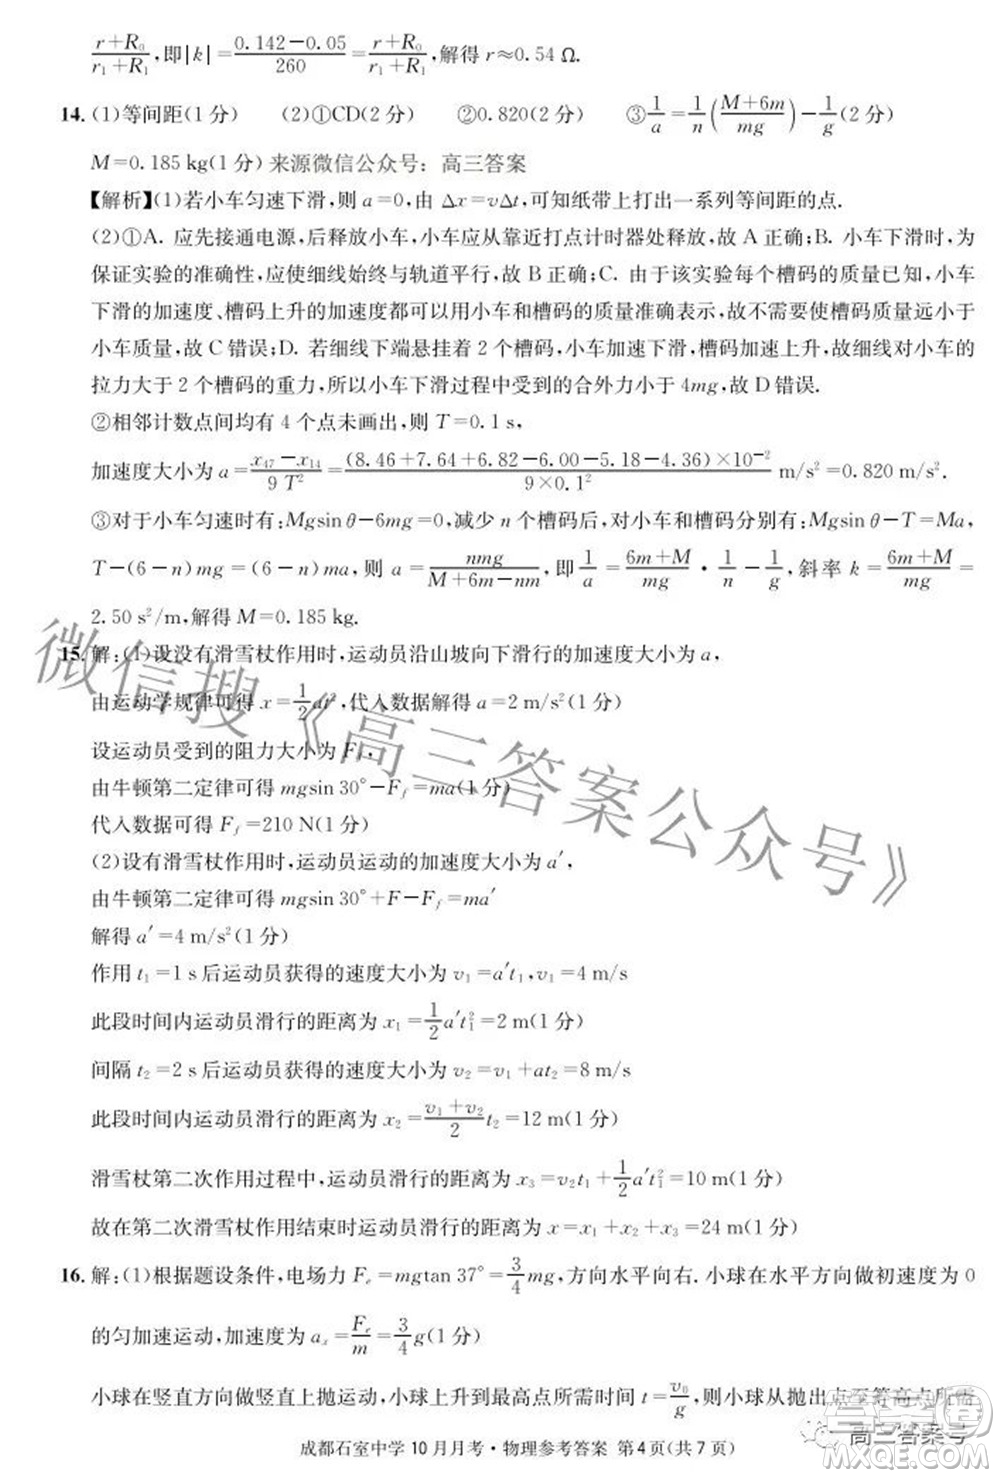 (r+R₀)/(r₁+R₁),即|k|=(0.142-0.05)/260=(r+R₀)/(r₁+R₁),解得 r≈0.54 Ω.
14.(1)等间距(1分) (2)①CD(2分) ②0.820(2分) ③1/a=1/n((M+6m)/mg)-1/g(2分)
M=0.185 kg(1分) 来源微信公众号：高三答案
【解析】(1)若小车匀速下滑,则 a=0,由 Δx=vΔt,可知纸带上打出一系列等间距的点.
(2)①A. 应先接通电源,后释放小车,小车应从靠近打点计时器处释放,故 A 正确;B. 小车下滑时,为
保证实验的准确性,应使细线始终与轨道平行,故 B 正确;C. 由于该实验每个槽码的质量已知,小车
下滑的加速度、槽码上升的加速度都可以用质量准确表示,故不需要槽码的质量远远小于
小车质量,故 C 错误;D. 若细线下端悬挂着 2 个槽码,小车加速下滑,槽码加速上升,故细线对小车的
拉力大于 2 个槽码的重力,所以小车下滑过程中受到的合外力小于 4mg,故 D 错误.
②相邻计数点间均有 4 个点未画出,则 T=0.1 s,
加速度大小为 a=(x₄₇-x₁₄)/(9T²)=(8.46+7.64+6.82-6.00-5.18-4.36)×10⁻²/(9×0.1²) m/s²=0.820 m/s².
③对于小车匀速时有:Mgsin θ-6mg=0,减少 n 个槽码后,对小车和槽码分别有:Mgsin θ-T=Ma,
T-(6-n)mg=(6-n)ma,则 a=nmg/(M+6m-nm),即1/a=(6m+M)/mg·1/n-1/g,斜率 k=(6m+M)/mg=
2.50 s²/m,解得 M=0.185 kg.
15.解:(1)设没有滑雪杖作用时,运动员沿山坡向下滑行的加速度大小为 a,
由运动学规律可得 x=1/2at²,代入数据解得 a=2 m/s²(1分)
设运动员受到的阻力大小为 F_f,
由牛顿第二定律可得 mgsin 30°-F_f=ma(1分)
代入数据可得 F_f=210 N(1分)
(2)设有滑雪杖作用时,运动员运动的加速度大小为 a′,
由牛顿第二定律可得 mgsin 30°+F-F_f=ma′
解得 a′=4 m/s²(1分)
作用 t₁=1 s 后运动员获得的速度大小为 v₁=a′t₁=4 m/s
此段时间内运动员滑行的距离为 x₁=1/2a′t₁²=2 m(1分)
间隔 t₂=2 s 后运动员获得的速度大小为 v₂=v₁+at₂=8 m/s
此段时间内运动员滑行的距离为 x₂=(v₁+v₂)/2t₂=12 m(1分)
滑雪杖第二次作用过程中,运动员滑行的距离为 x₃=v₂t₁+1/2a′t₁²=10 m(1分)
故在第二次滑雪杖作用结束时运动员滑行的距离为 x=x₁+x₂+x₃=24 m(1分)
16.解:(1)根据题设条件,电场力 Fₑ=mgtan 37°=3/4mg,方向水平向右.小球在水平方向做初速度为 0
的匀加速运动,加速度为 aₓ=Fₑ/m=3/4g(1分)
小球在竖直方向做竖直上抛运动,小球上升到最高点所需时间 t=v₀/g,则小球从抛出点至等高点所需
成都石室中学 10 月月考·物理参考答案 第 4 页(共 7 页)
微信搜《高三答案公众号》
高三答案号